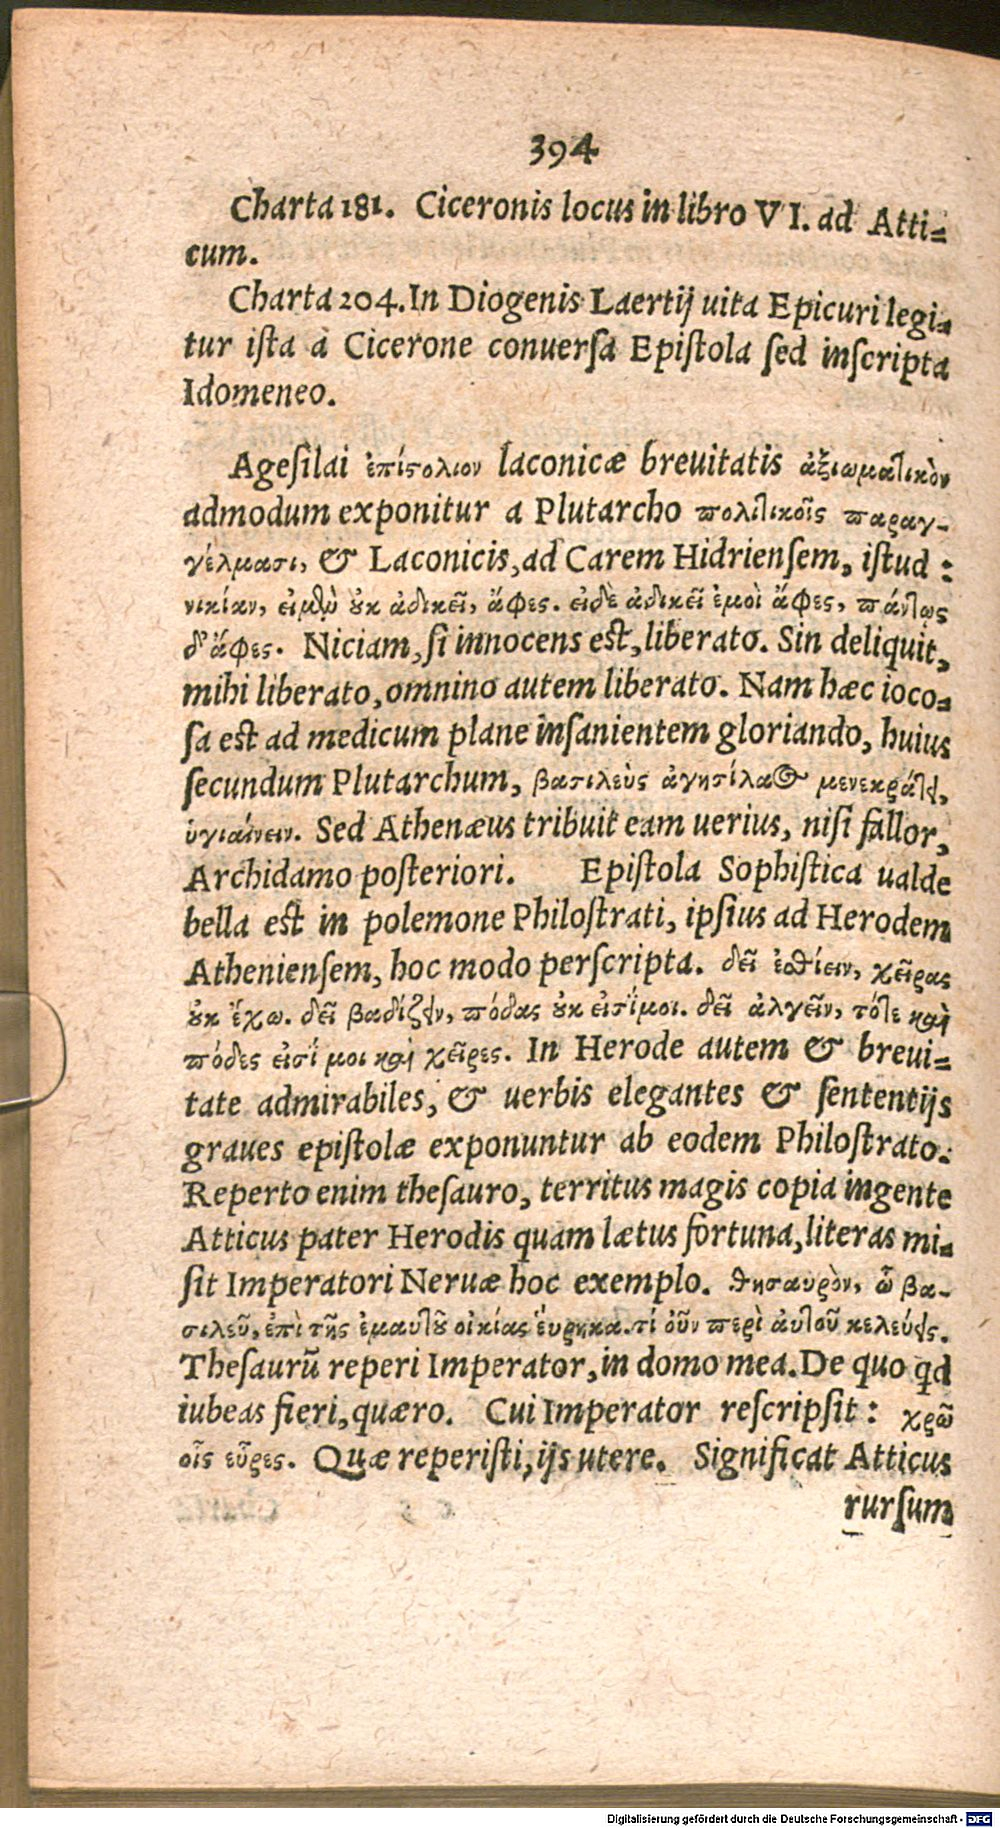 394
Charta 181. Ciceronis locus in libro VI. ad Atti-
cum.
Charta 204. In Diogenis Laertij uita Epicuri legi-
tur ista à Cicerone conuersa Epistola sed inscripta
Idomeneo.
Agesilai ἐπίστολιον laconicæ breuitatis ἀξιωματικὸν
admodum exponitur a Plutarcho πολιτικοῖς παραγ-
γέλμασι, & Laconicis, ad Carem Hidriensem, istud:
νικίαν, εἰ μὲν οὐκ ἀδικεῖ, ἄφες. εἰ δὲ ἀδικεῖ ἐμοὶ ἄφες, πάντως
δ' ἄφες. Niciam, si innocens est, liberato. Sin deliquit,
mihi liberato, omnino autem liberato. Nam hæc ioco-
sa est ad medicum plane insanientem gloriando, huius
secundum Plutarchum, βασιλεὺς ἀγησίλαος μενεκράτει,
ὑγιαίνειν. Sed Athenæus tribuit eam uerius, nisi fallor,
Archidamo posteriori. Epistola Sophistica ualde
bella est in polemone Philostrati, ipsius ad Herodem
Atheniensem, hoc modo perscripta. δεῖ ἐσθίειν, χεῖρας
οὐκ ἔχω. δεῖ βαδίζειν, πόδας οὐκ εἰσί μοι. δεῖ ἀλγεῖν, τότε καὶ
πόδες εἰσί μοι καὶ χεῖρες. In Herode autem & breui-
tate admirabiles, & uerbis elegantes & sententijs
graues epistolæ exponuntur ab eodem Philostrato.
Reperto enim thesauro, territus magis copia ingente
Atticus pater Herodis quam lætus fortuna, literas mi-
sit Imperatori Neruæ hoc exemplo. θησαυρὸν, ὦ βα-
σιλεῦ, ἐπὶ τῆς ἐμαυτοῦ οἰκίας εὕρηκα. τί οὖν περὶ αὐτοῦ κελεύεις.
Thesaurū reperi Imperator, in domo mea. De quo qd
iubeas fieri, quæro. Cui Imperator rescripsit: χρῶ
οἷς εὗρες. Quæ reperisti, ijs utere. Significat Atticus
rursum
Digitalisierung gefördert durch die Deutsche Forschungsgemeinschaft - DFG